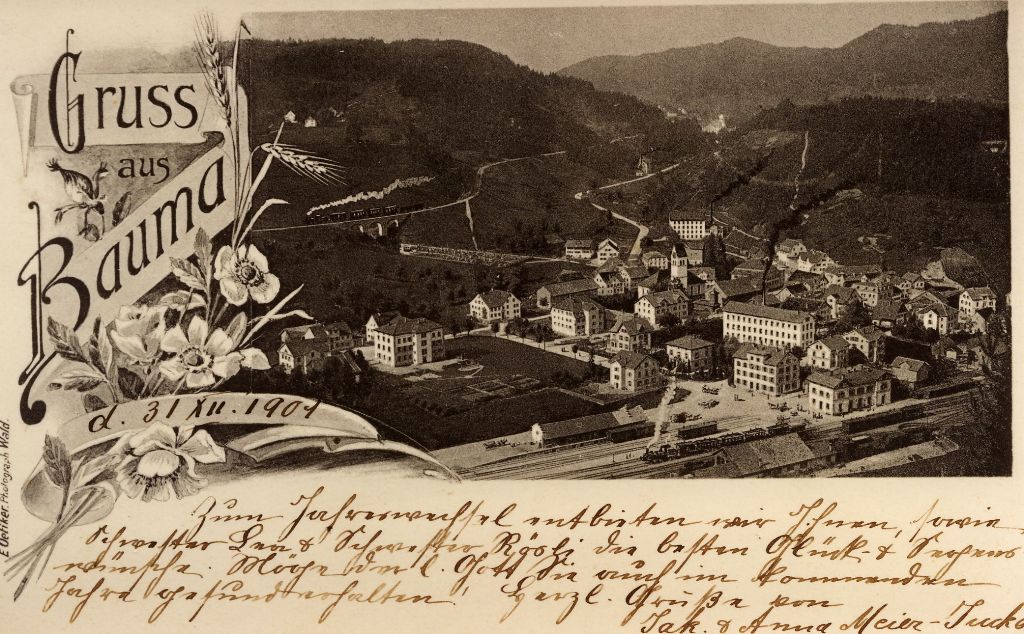 Gruss
aus
Bauma
d. 31 XII. 1901
E. Oetiker. Photograph Wald.
Zum Jahreswechsel entbieten wir Ihnen, sowie
Schwester Lea & Schwester Rösli die besten Glück- & Segens
wünsche. Möge der l. Gott Sie auch im kommenden
Jahre gesund erhalten! Herzl. Grüße von
Jak. & Anna Meier-